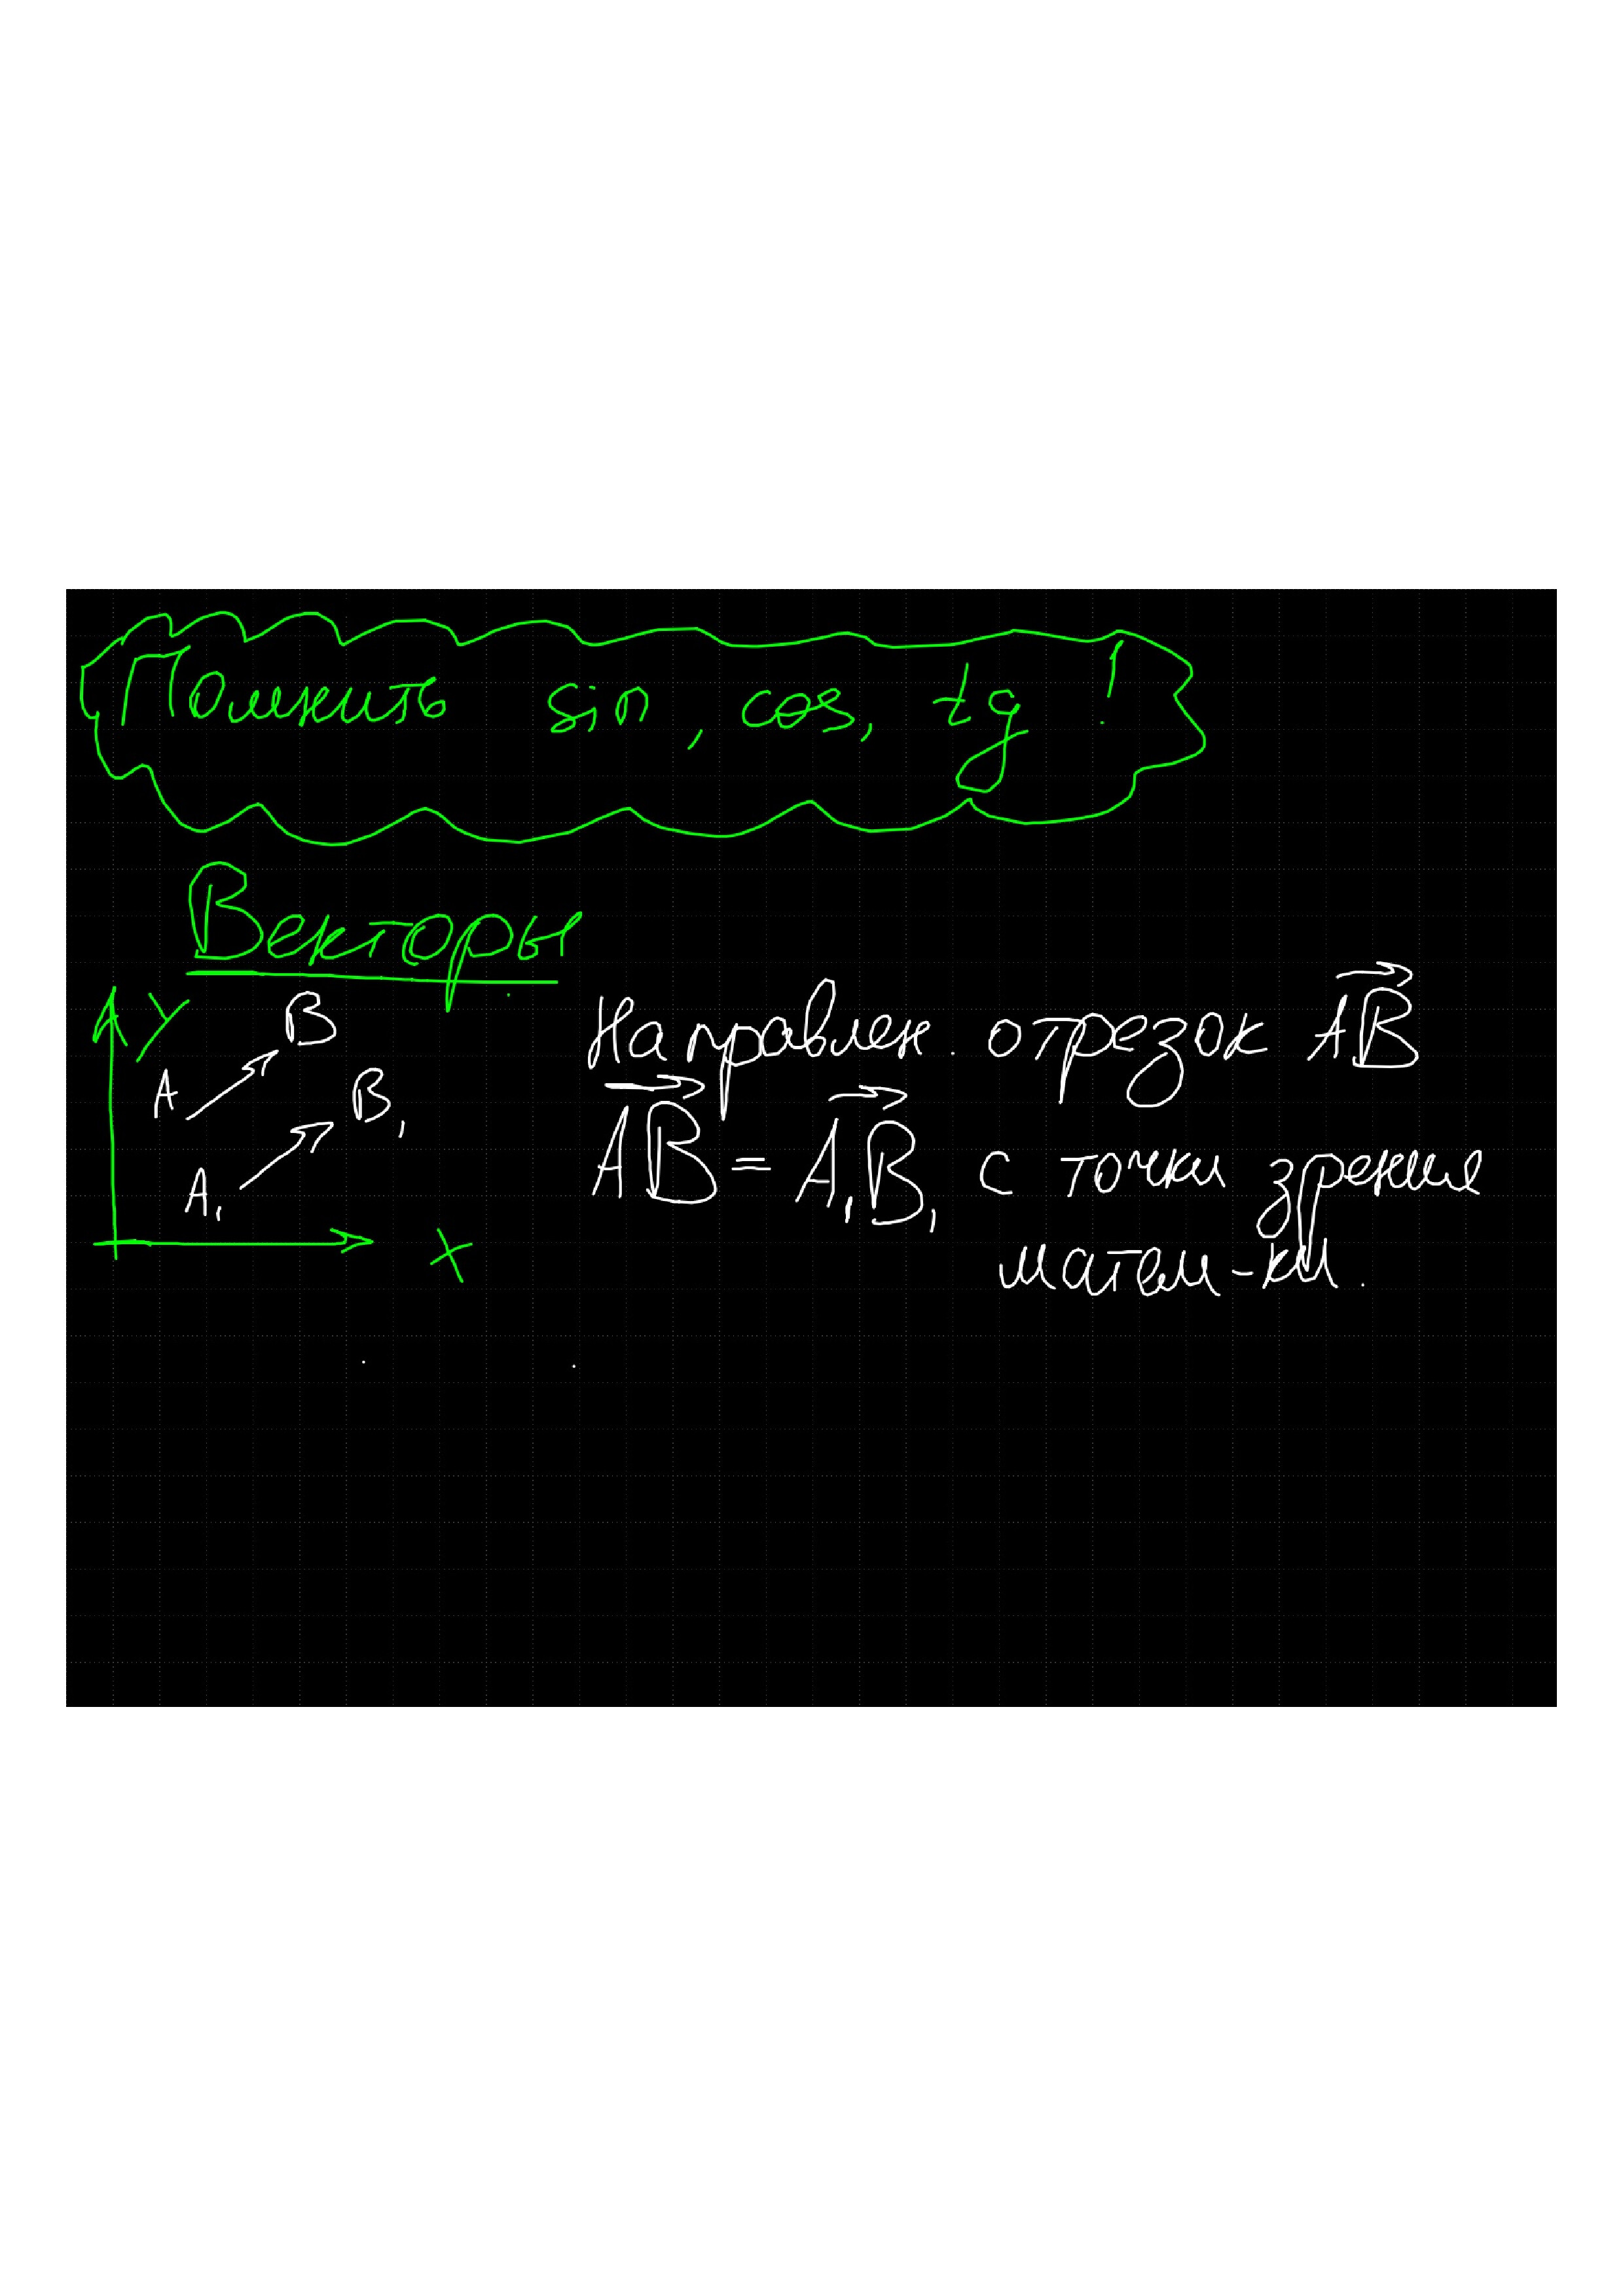 Помнить sin, cos, tg !
Векторы
Y
B
A
B₁
A₁
X
Направлен. отрезок A͞B⃗
A͞B⃗ = A₁B₁⃗ с точки зрения
матем-ки.